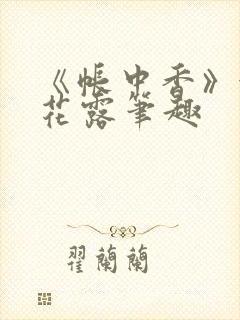 《帐中香》
花露笔趣
翟兰兰